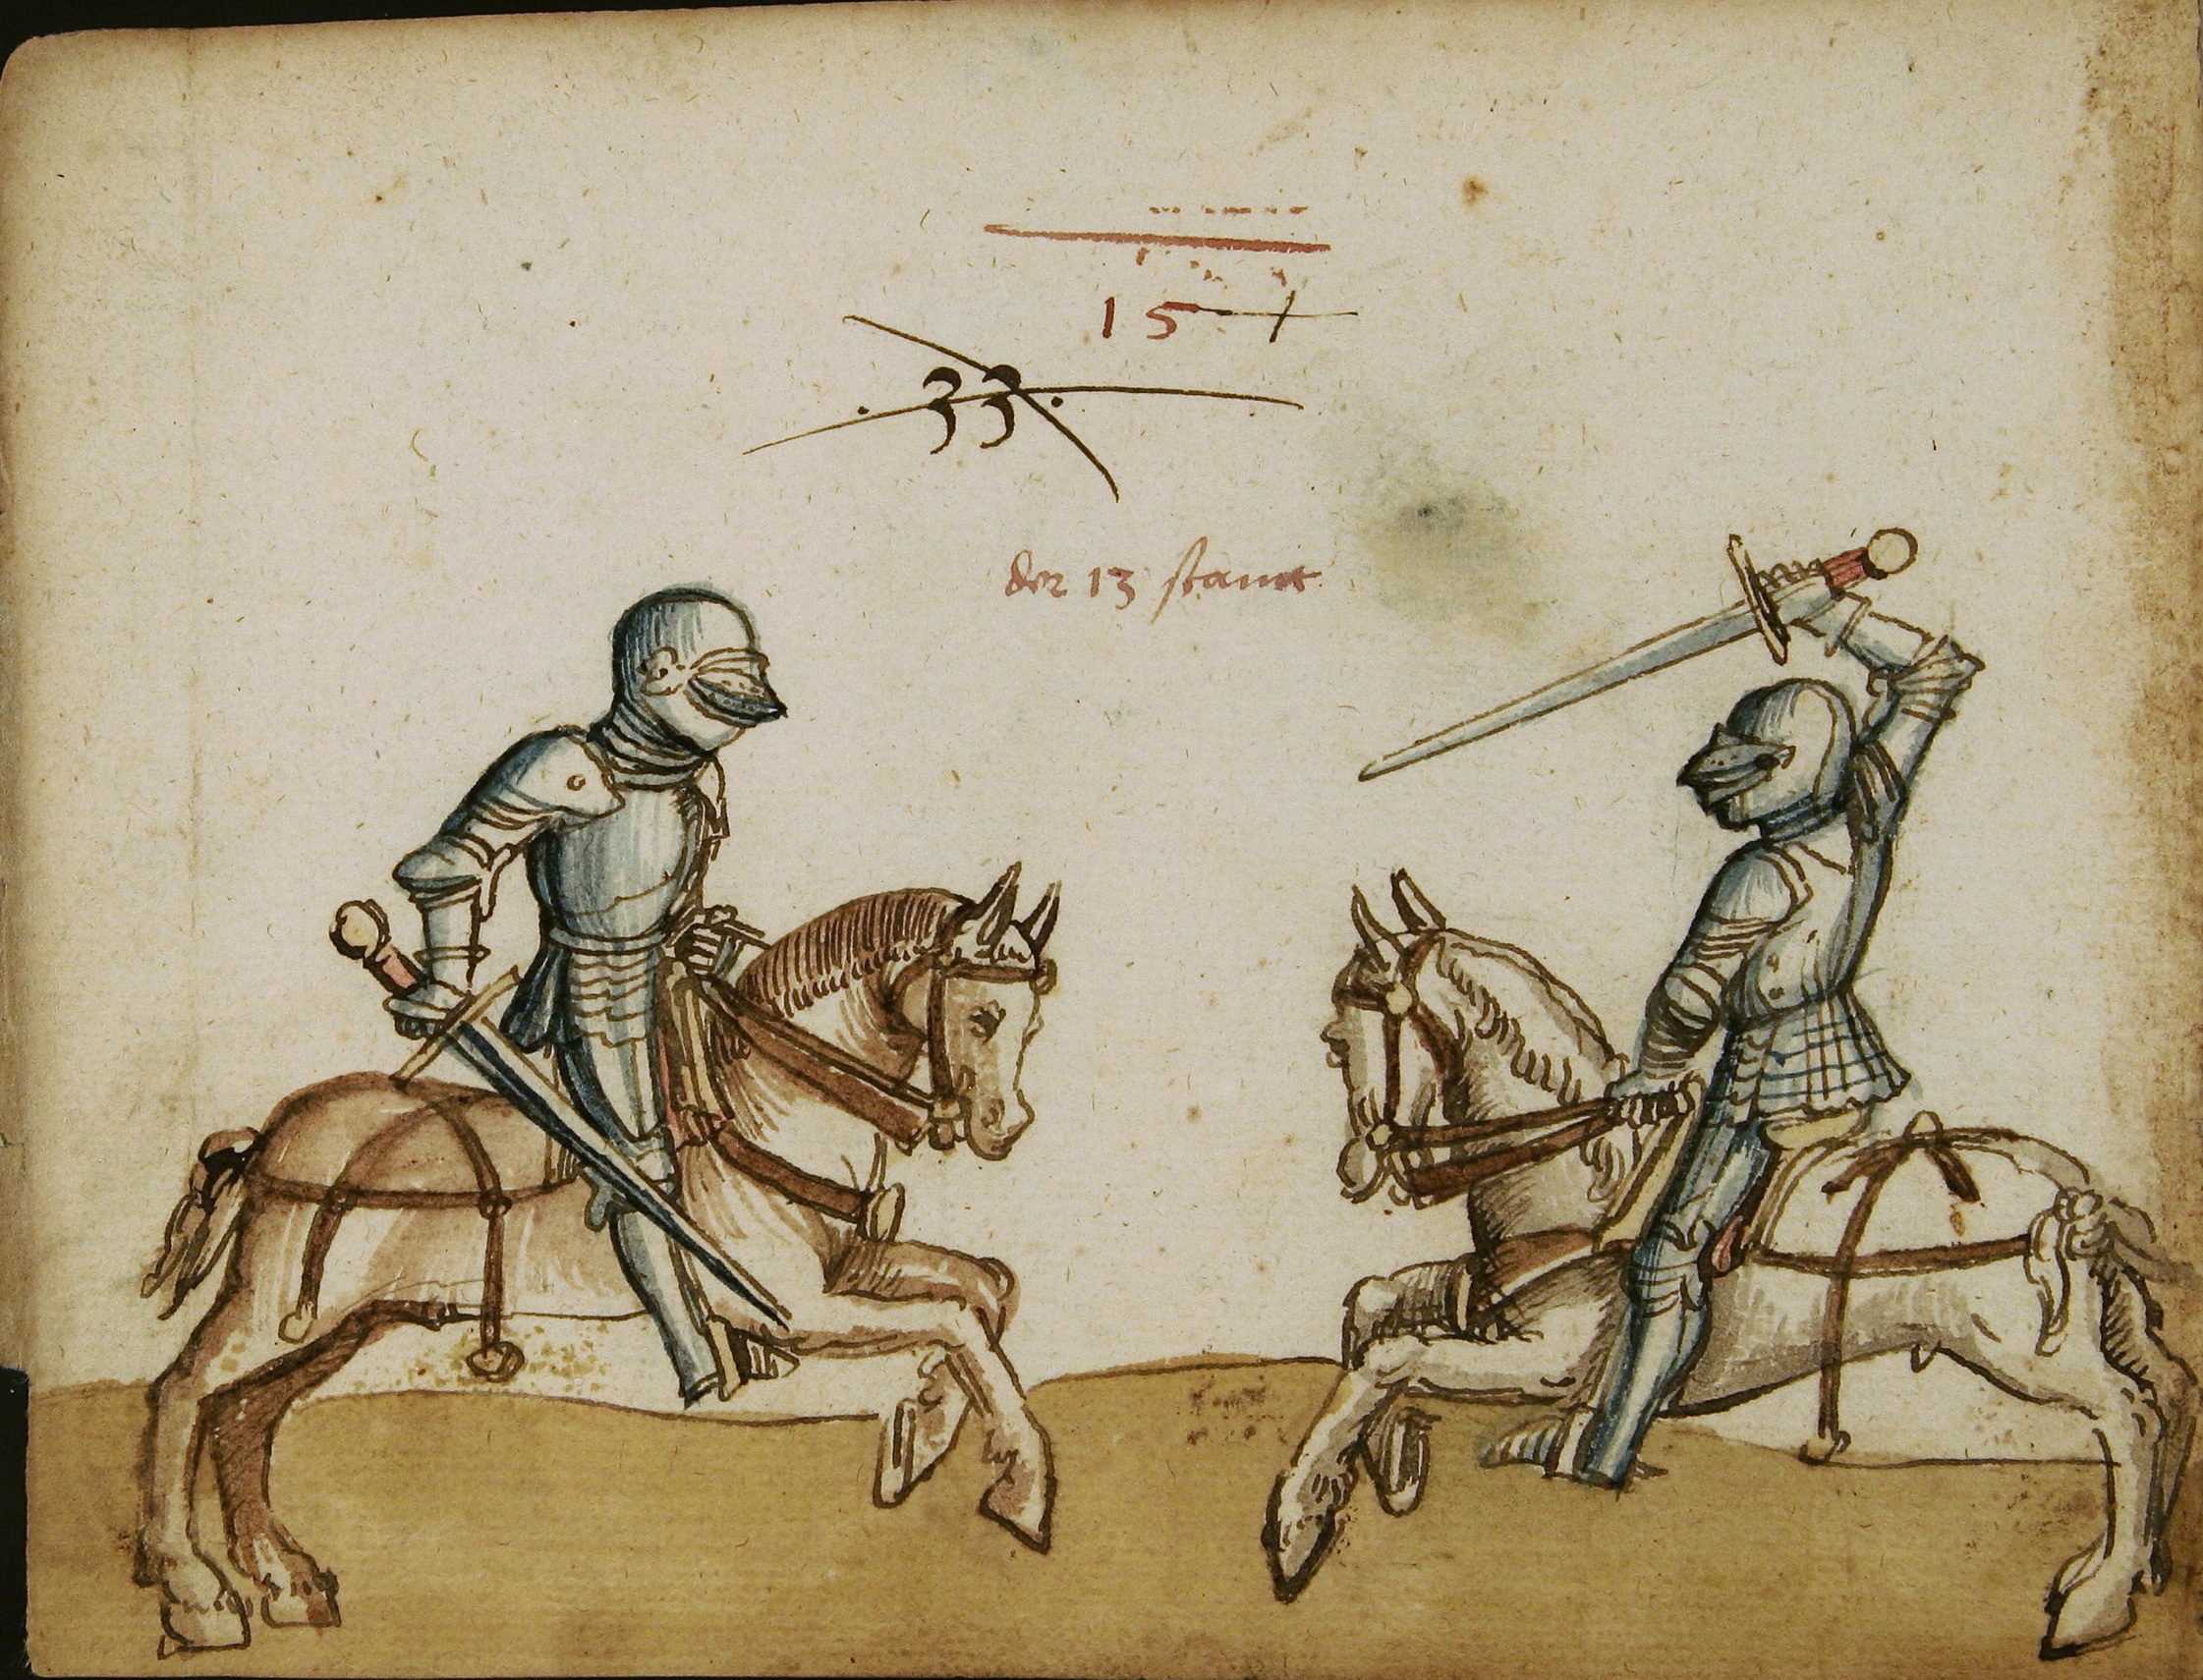 15
.33.
der 13 stant